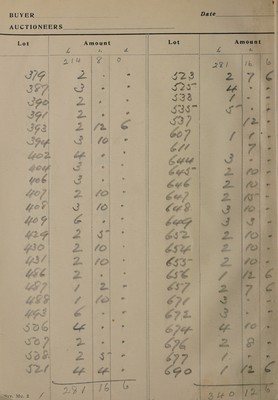 BUYER Date
AUCTIONEERS
Lot Amount
£ s. d.
214 8 0
379 2 " "
387 3 " "
390 2 " "
391 2 " "
393 2 12 6
394 3 10 "
402 4 " "
404 3 " "
406 3 " "
407 2 10 "
408 3 10 "
409 6 " "
429 2 5 "
430 2 10 "
431 2 10 "
486 2 " "
487 1 2 "
488 1 10 "
493 6 " "
506 4 " "
507 2 " "
508 2 5 "
521 4 4 "
281 16 6
Lot Amount
£ s. d.
281 16 6
523 2 7 6
525 4 " "
533 1 " "
535 5 " "
537 12 "
607 1 1 "
611 7 "
644 3 " "
645 2 10 "
646 2 10 "
647 2 15 "
648 3 10 "
649 3 3 "
652 2 10 "
654 2 10 "
655 2 10 "
656 1 12 6
657 2 7 6
671 3 " "
672 3 " "
674 4 10 "
676 2 8 "
677 1 " "
690 1 12 6
340 12 6